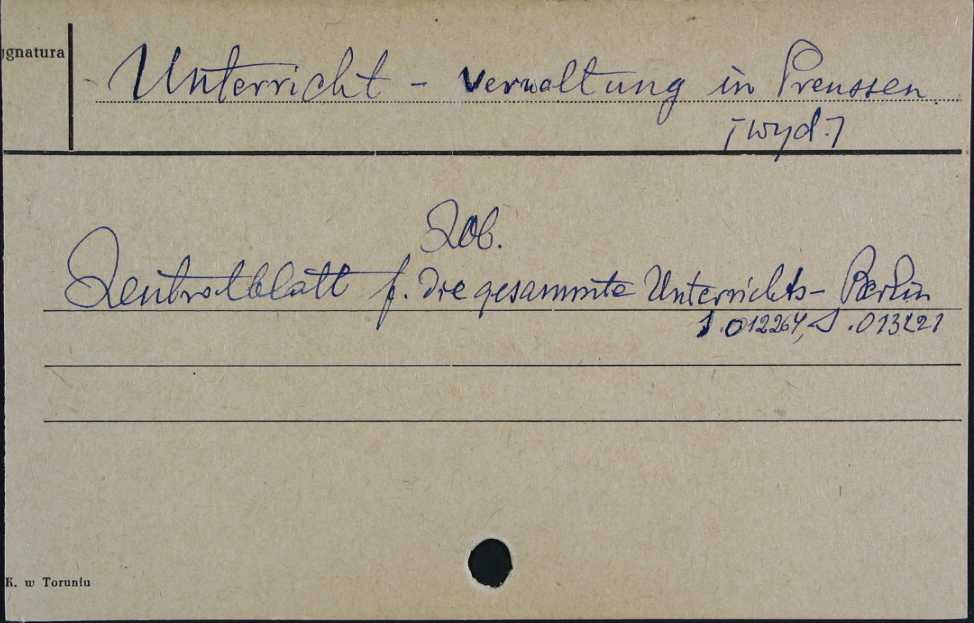 ygnatura
Unterricht - Verwaltung in Preussen
[wyd.]
Zob.
Zentralblatt f. die gesammte Unterrichts- Berlin
S.012264, S.013221
K. w Toruniu